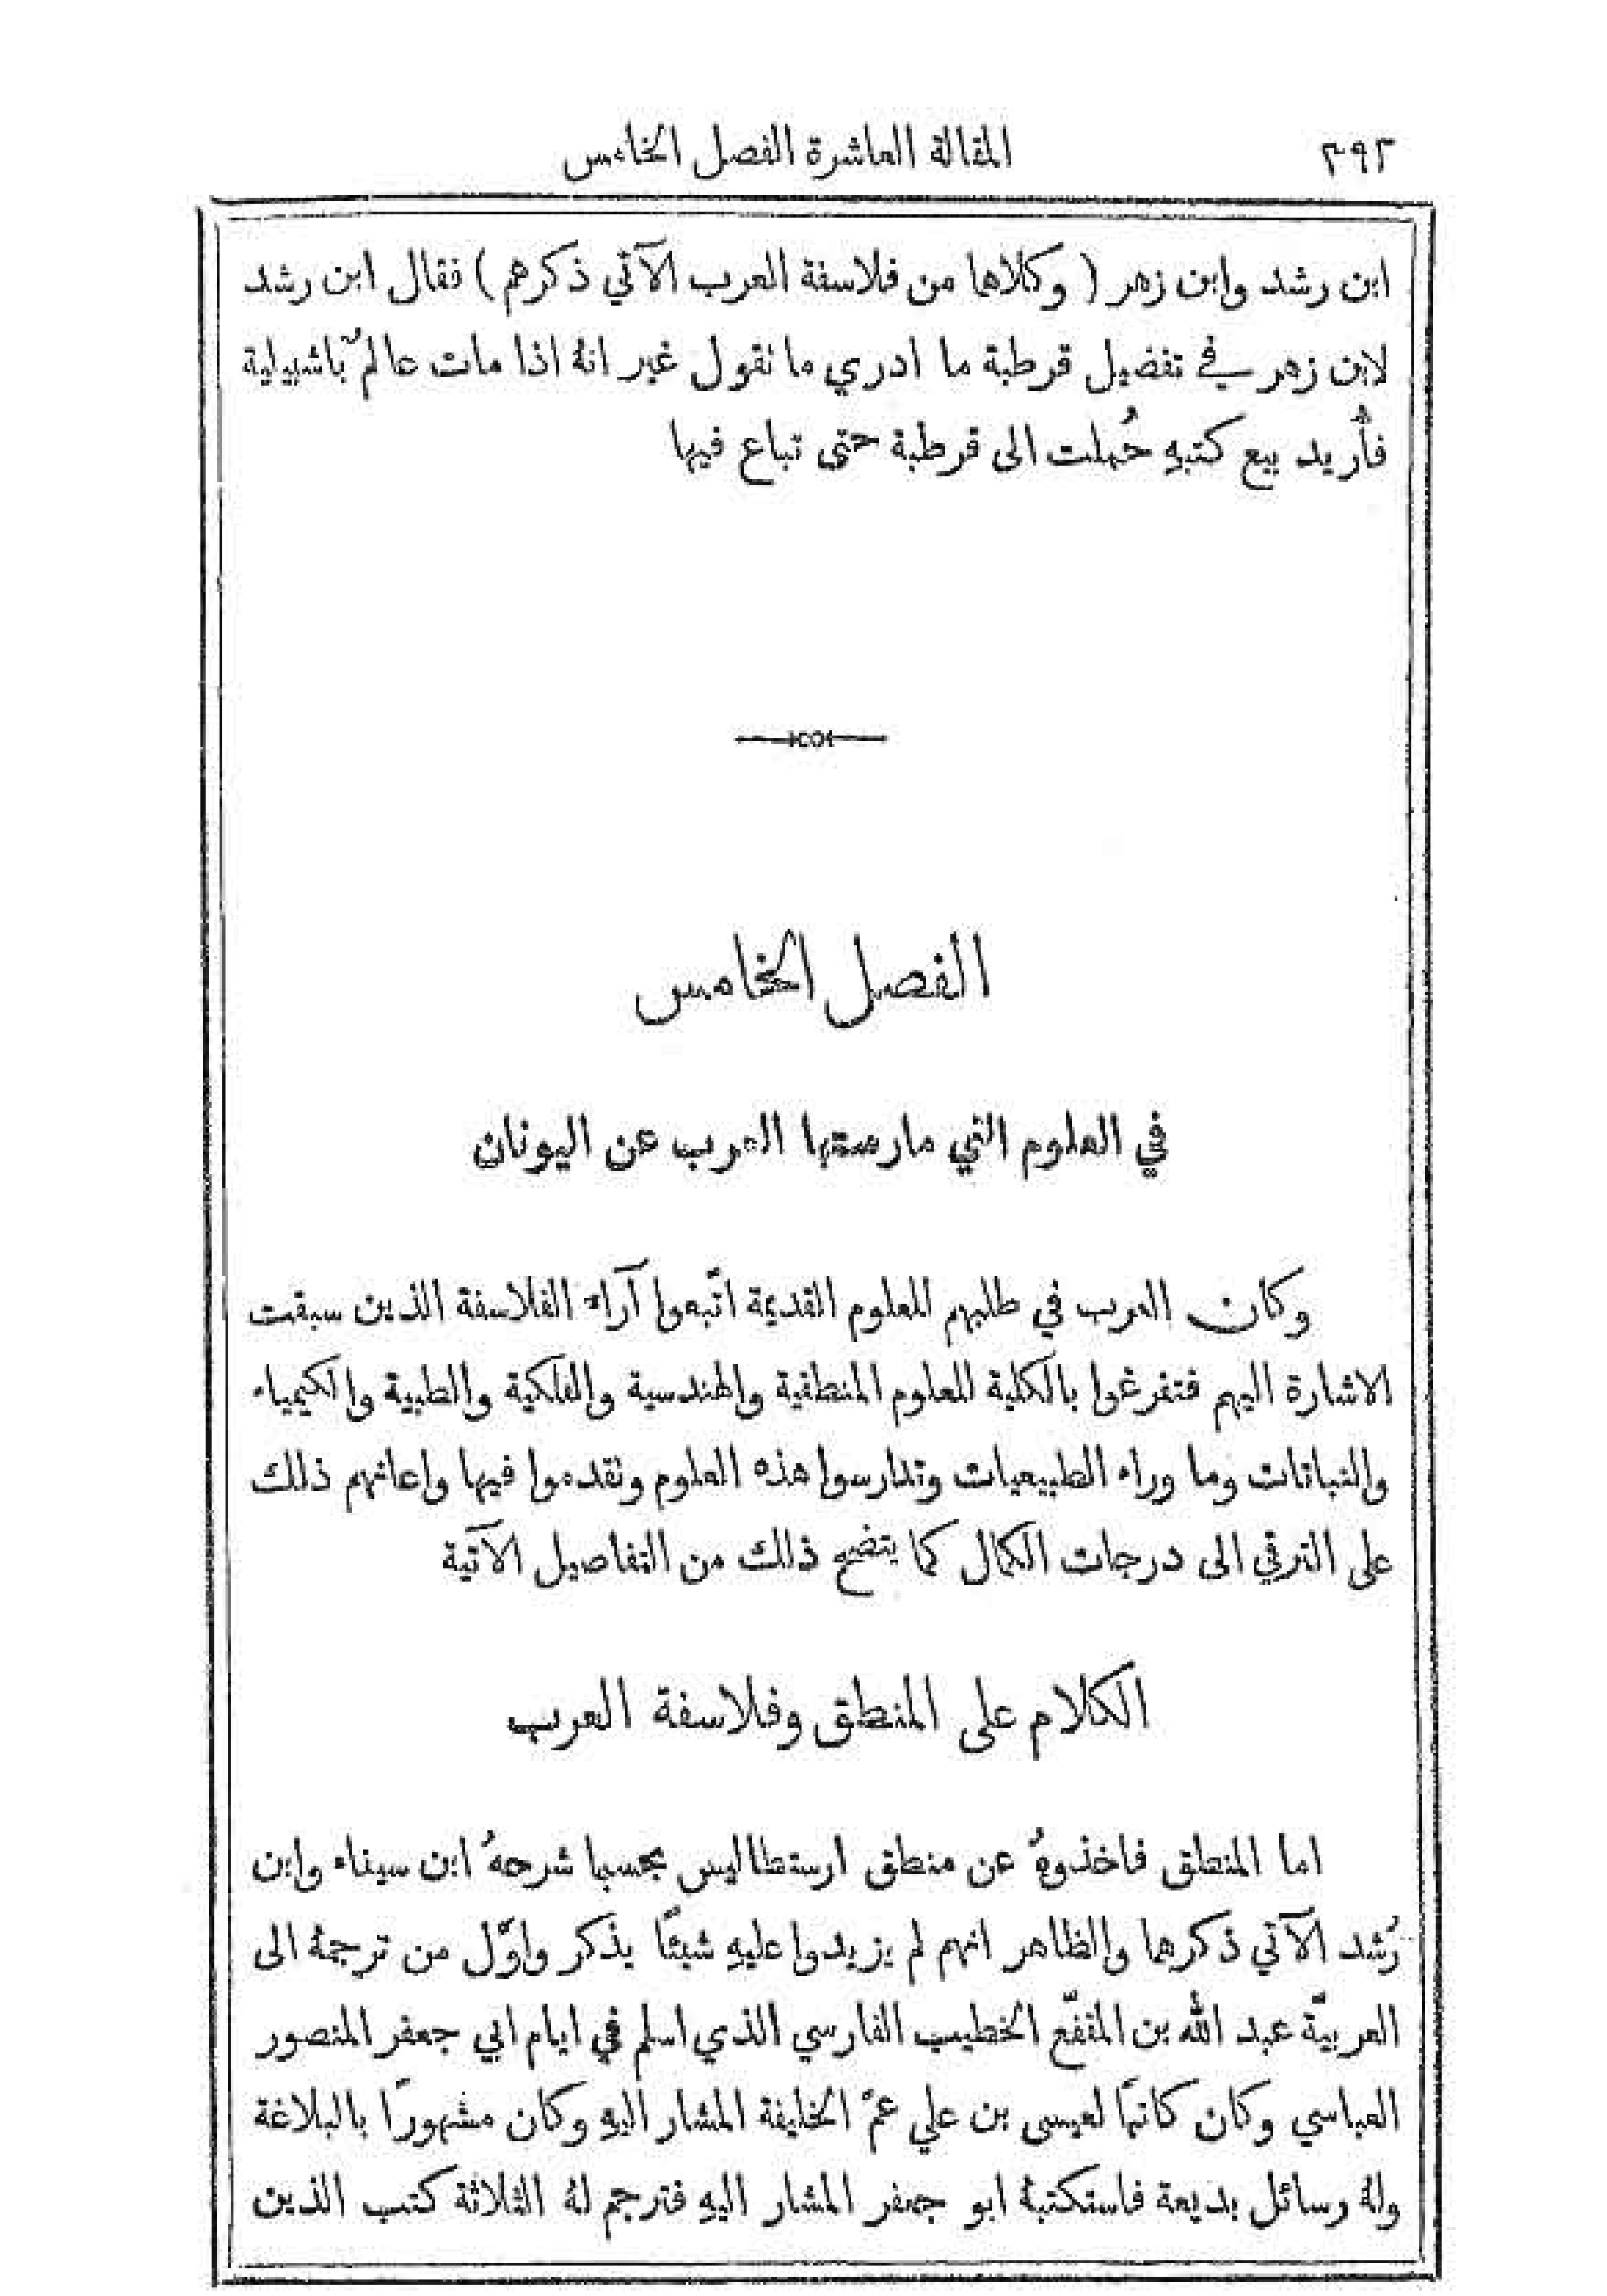 ٢٩٢ المقالة العاشرة الفصل الخامس
ابن رشد وابن زهر ( وكلاها من فلاسفة العرب الآتي ذكرهم ) فقال ابن رشد
لابن زهر في تفضيل قرطبة ما ادري ما نقول غير انهُ اذا مات عالمٌ باشبيلية
فأُريد بيع كتبهِ حُملت الى قرطبة حتى تباع فيها
الفصل الخامس
في العلوم التي مارستها العرب عن اليونان
وكان العرب في طلبهم للعلوم القديمة اتّبعوا آراء الفلاسفة الذين سبقت
الاشارة اليهم فتفرغوا بالكلية للعلوم المنطقية والهندسية والفلكية والطبية والكيمياء
والنباتات وما وراء الطبيعيات وتدارسوا هذه العلوم ونقدموا فيها واعانهم ذلك
على الترقي الى درجات الكمال كما يتضح ذلك من التفاصيل الآتية
الكلام على المنطق وفلاسفة العرب
اما المنطق فاخذوهُ عن منطق ارستطاليس بحسبما شرحهُ ابن سيناء وابن
رُشد الآتي ذكرها والظاهر انهم لم يزيدوا عليهِ شيئًا يذكر واوّل من ترجمهُ الى
العربيّة عبد الله بن المقفّع الخطيب الفارسي الذي اسلم في ايام ابي جعفر المنصور
العباسي وكان كاتبًا لعيسى بن علي عمّ الخليفة المشار اليهِ وكان مشهورًا بالبلاغة
ولهُ رسائل بديعة فاستكتبهُ ابو جعفر المشار اليهِ فترجم لهُ الثلاثة كتب الذين